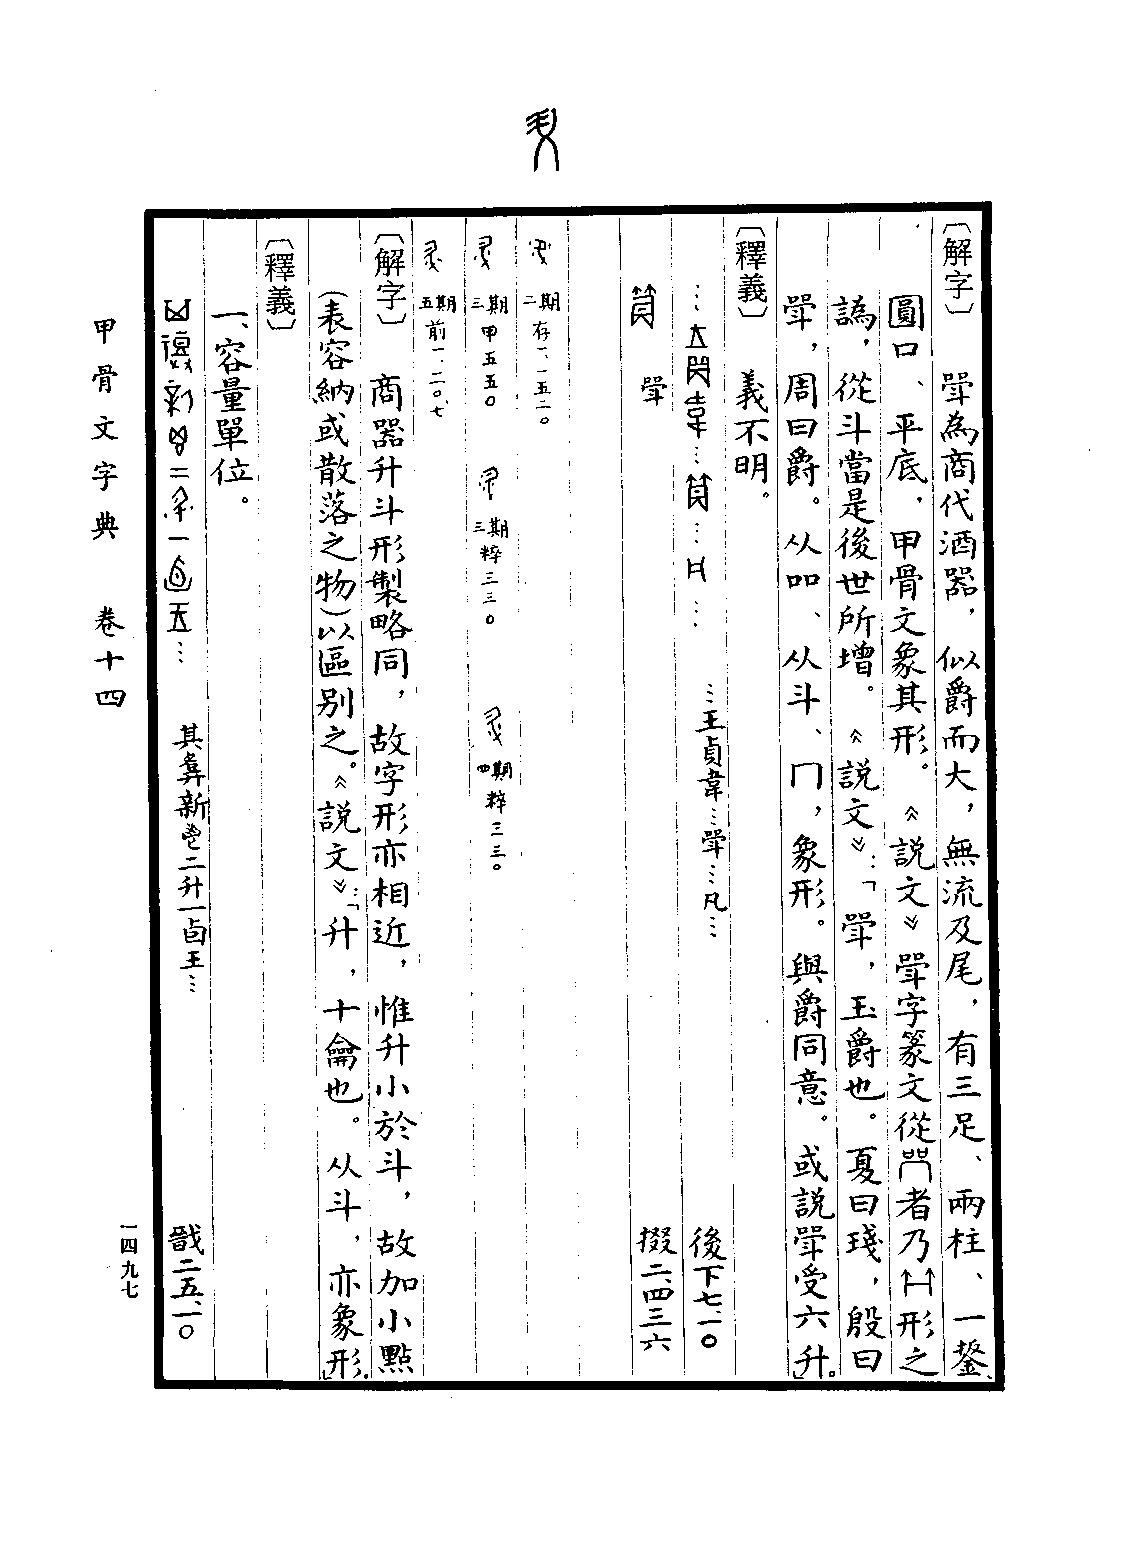 〔解字〕 斝為商代酒器，似爵而大，無流及尾，有三足、兩柱、一鋬、
圓口、平底，甲骨文象其形。《説文》斝字篆文從者乃形之
譌，從斗當是後世所增。《説文》：「斝，玉爵也。夏曰琖，殷曰
斝，周曰爵。从吅、从斗、冂，象形。與爵同意。或説斝受六升。」
〔釋義〕 義不明。
…王貞韋…斝…凡… 後下七、一〇
斝 掇二、四三六
二期 存一、一五二〇
三期 甲五五〇 三期 粹三三〇 四期 粹三三〇
五期 前一、二〇、七
〔解字〕 商器升斗形製略同，故字形亦相近，惟升小於斗，故加小點
(表容納或散落之物)以區别之。《説文》：「升，十龠也。从斗，亦象形。」
〔釋義〕
一、容量單位。
其彝新鬯二升一卣王… 戩二五、一〇
甲骨文字典 卷十四
一四九七